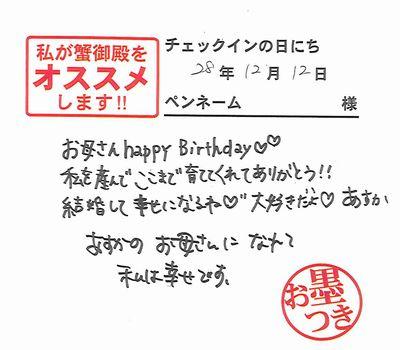 私が蟹御殿を
オススメ
します!!
チェックインの日にち
28年12月12日
ペンネーム 様
お母さんhappy Birthday♡♡
私を産んでここまで育ててくれてありがとう!!
結婚して幸せになるね♡" 大好きだよ♡ あすか
あすかの お母さんに なれて
私は幸せです。
お墨つき